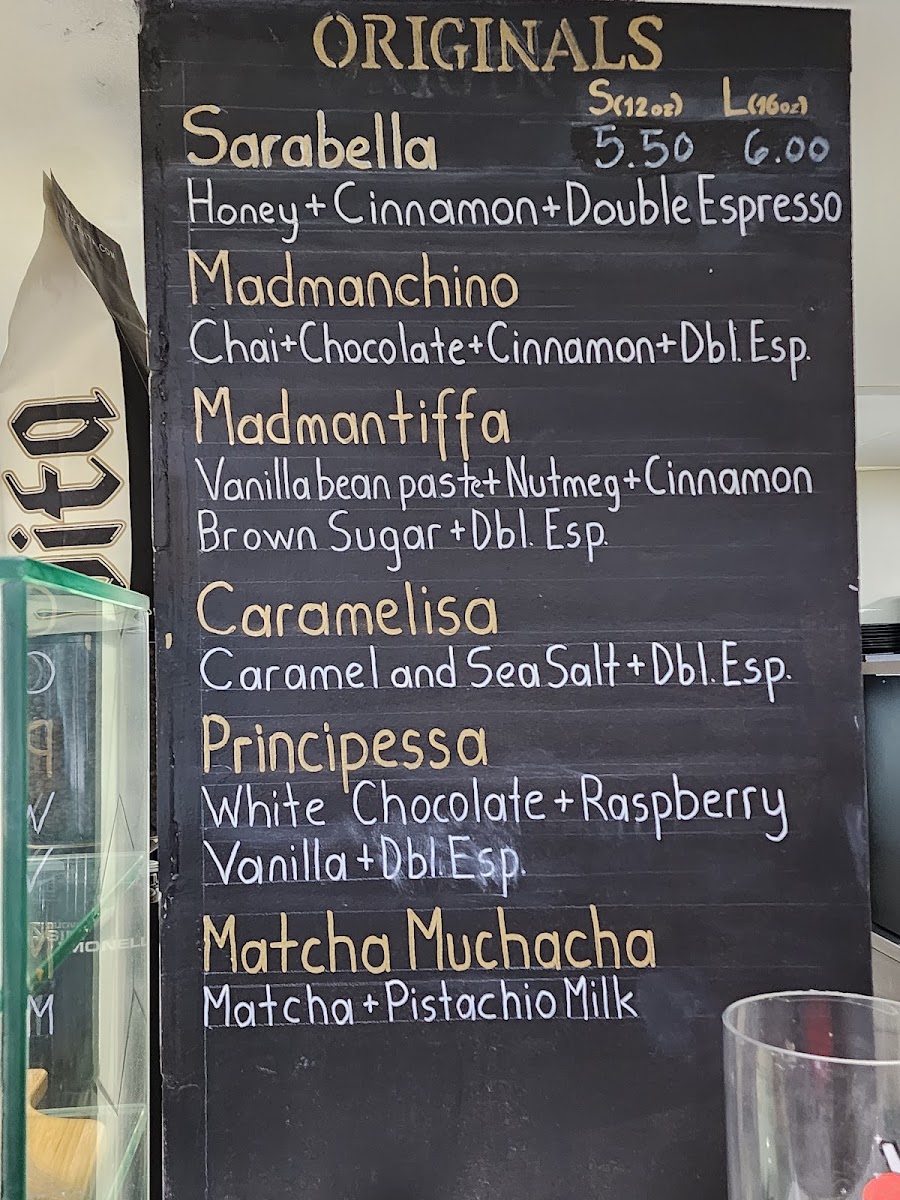 ORIGINALS
S(12oz) L(16oz)
Sarabella 5.50 6.00
Honey+Cinnamon+Double Espresso
Madmanchino
Chai+Chocolate+Cinnamon+Dbl. Esp.
Madmantiffa
Vanilla bean paste+Nutmeg+Cinnamon
Brown Sugar+Dbl. Esp.
Caramelisa
Caramel and Sea Salt+Dbl. Esp.
Principessa
White Chocolate+Raspberry
Vanilla+Dbl. Esp.
Matcha Muchacha
Matcha+Pistachio Milk